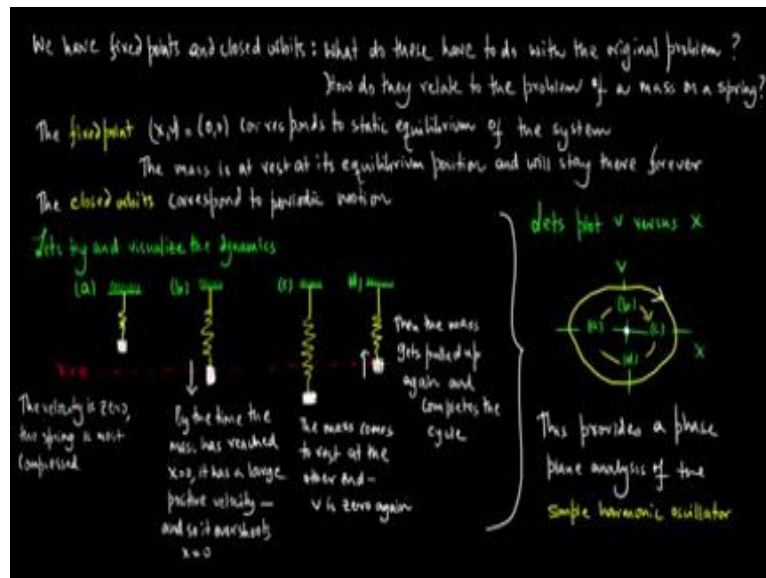 We have fixed points and closed orbits : What do these have to do with the original problem ?
How do they relate to the problem of a mass on a spring?
The fixed point (x,v) = (0,0) corresponds to static equilibrium of the system
The mass is at rest at its equilibrium position and will stay there forever
The closed orbits correspond to periodic motion
Lets try and visualize the dynamics
(a) (b) (c) (d)
x=0
The velocity is zero,
the spring is most
compressed
By the time the
mass has reached
x=0, it has a large
positive velocity —
and so it overshoots
x=0
The mass comes
to rest at the
other end —
v is zero again
Then the mass
gets pulled up
again and
completes the
cycle
Lets plot v versus x
V
(b)
(a) (c)
(d)
X
This provides a phase
plane analysis of the
simple harmonic oscillator